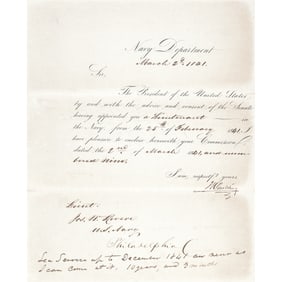 Navy Department
March 2d. 1841.
Sir,
The President of the United States
by and with the advice and consent of the Senate
having appointed you a Lieutenant
in the Navy, from the 25th of February 1841. I
have pleasure to enclose herewith your Commission,
dated the 2nd of March 1841, and num
bered nine.
I am, respectfy yours
Lieut:
Jos. W. Revere
U.S. Navy
Philadelphia
Sea Service up to December 1847 as near as
I can come at it. 10 years and 3 months